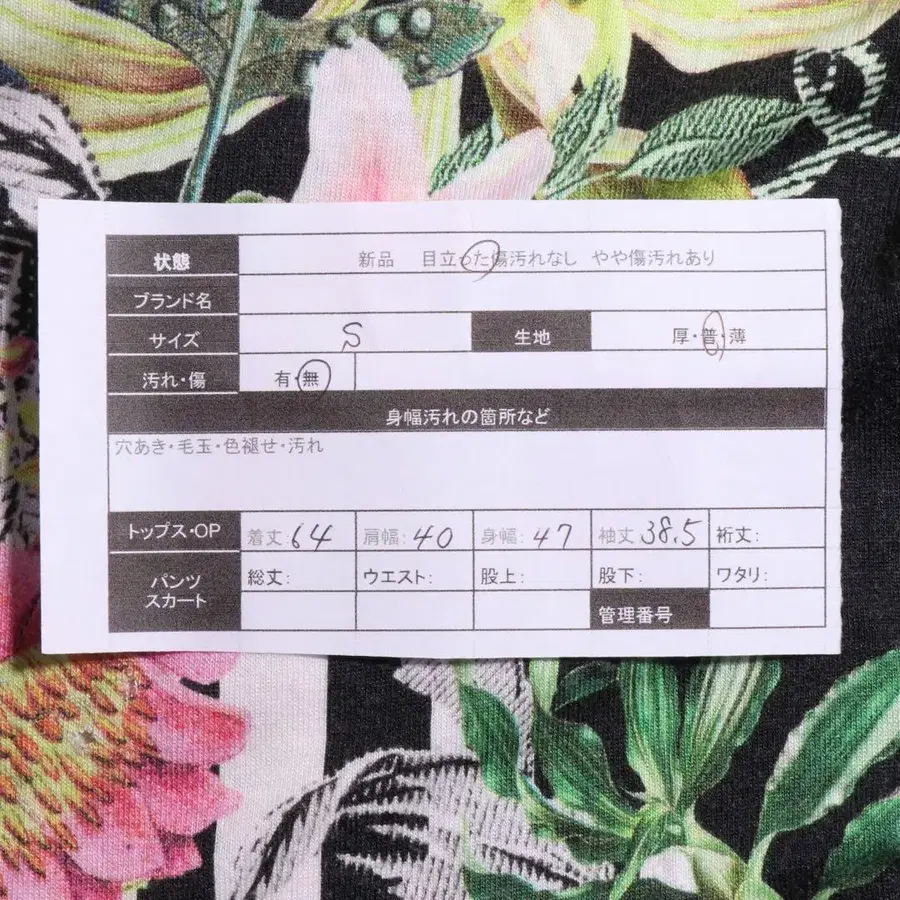 状態 新品 目立った傷汚れなし やや傷汚れあり
ブランド名
サイズ S 生地 厚・普・薄
汚れ・傷 有・無
身幅汚れの箇所など
穴あき・毛玉・色褪せ・汚れ
トップス・OP 着丈:64 肩幅:40 身幅:47 袖丈38.5 裄丈:
パンツ スカート 総丈: ウエスト: 股上: 股下: ワタリ:
管理番号